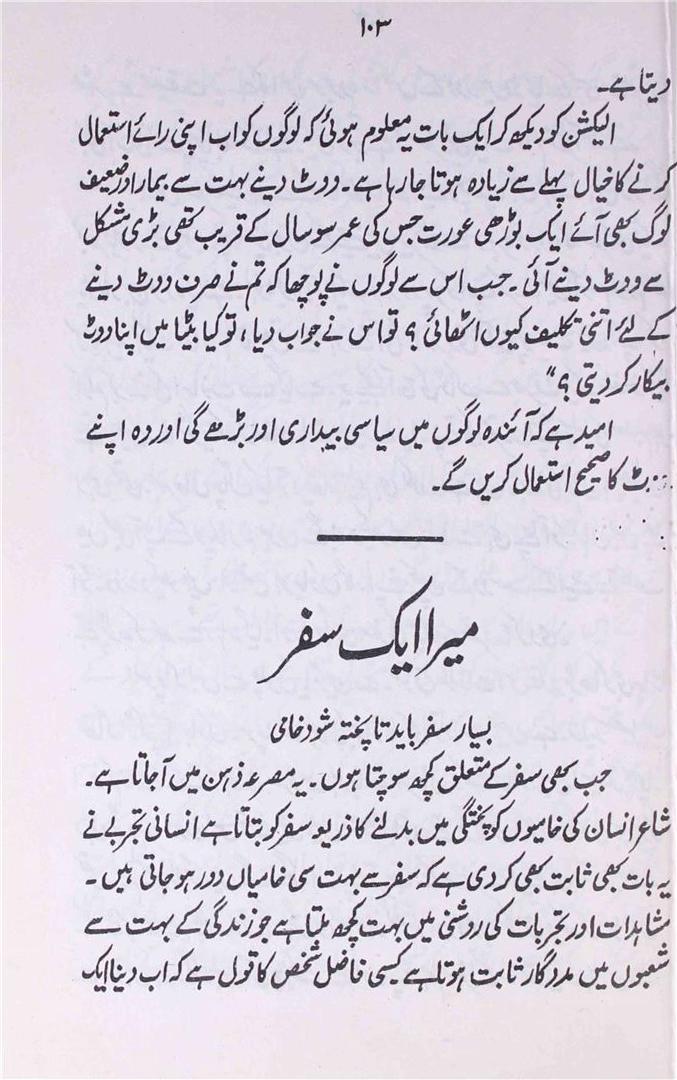 ۱۰۳
دیتا ہے۔
الیکشن کو دیکھ کر ایک بات یہ معلوم ہوئی کہ لوگوں کو اب اپنی رائے استعمال
کرنے کا خیال پہلے سے زیادہ ہوتا جارہا ہے۔ ووٹ دینے بہت سے بیمار اور ضعیف
لوگ بھی آئے ایک بوڑھی عورت جس کی عمر سو سال کے قریب تھی بڑی مشکل
سے ووٹ دینے آئی۔ جب اس سے لوگوں نے پوچھا کہ تم نے صرف ووٹ دینے
کے لئے اتنی تکلیف کیوں اٹھائی؟ تو اس نے جواب دیا، تو کیا بیٹا میں اپنا ووٹ
بیکار کر دیتی؟"
امید ہے کہ آئندہ لوگوں میں سیاسی بیداری اور بڑھے گی اور وہ اپنے
کا صحیح استعمال کریں گے۔
میرا ایک سفر
بسیار سفر باید تا پختہ شود خامی
جب بھی سفر کے متعلق کچھ سوچتا ہوں۔ یہ مصرعہ ذہن میں آجاتا ہے۔
شاعر انسان کی خامیوں کو پختگی میں بدلنے کا ذریعہ سفر کو بتاتا ہے انسانی تجربے نے
یہ بات بھی ثابت بھی کر دی ہے کہ سفر سے بہت سی خامیاں دور ہو جاتی ہیں۔
مشاہدات اور تجربات کی روشنی میں بہت کچھ ملتا ہے جو زندگی کے بہت سے
شعبوں میں مددگار ثابت ہوتا ہے کسی فاضل شخص کا قول ہے کہ اب دینا ایک